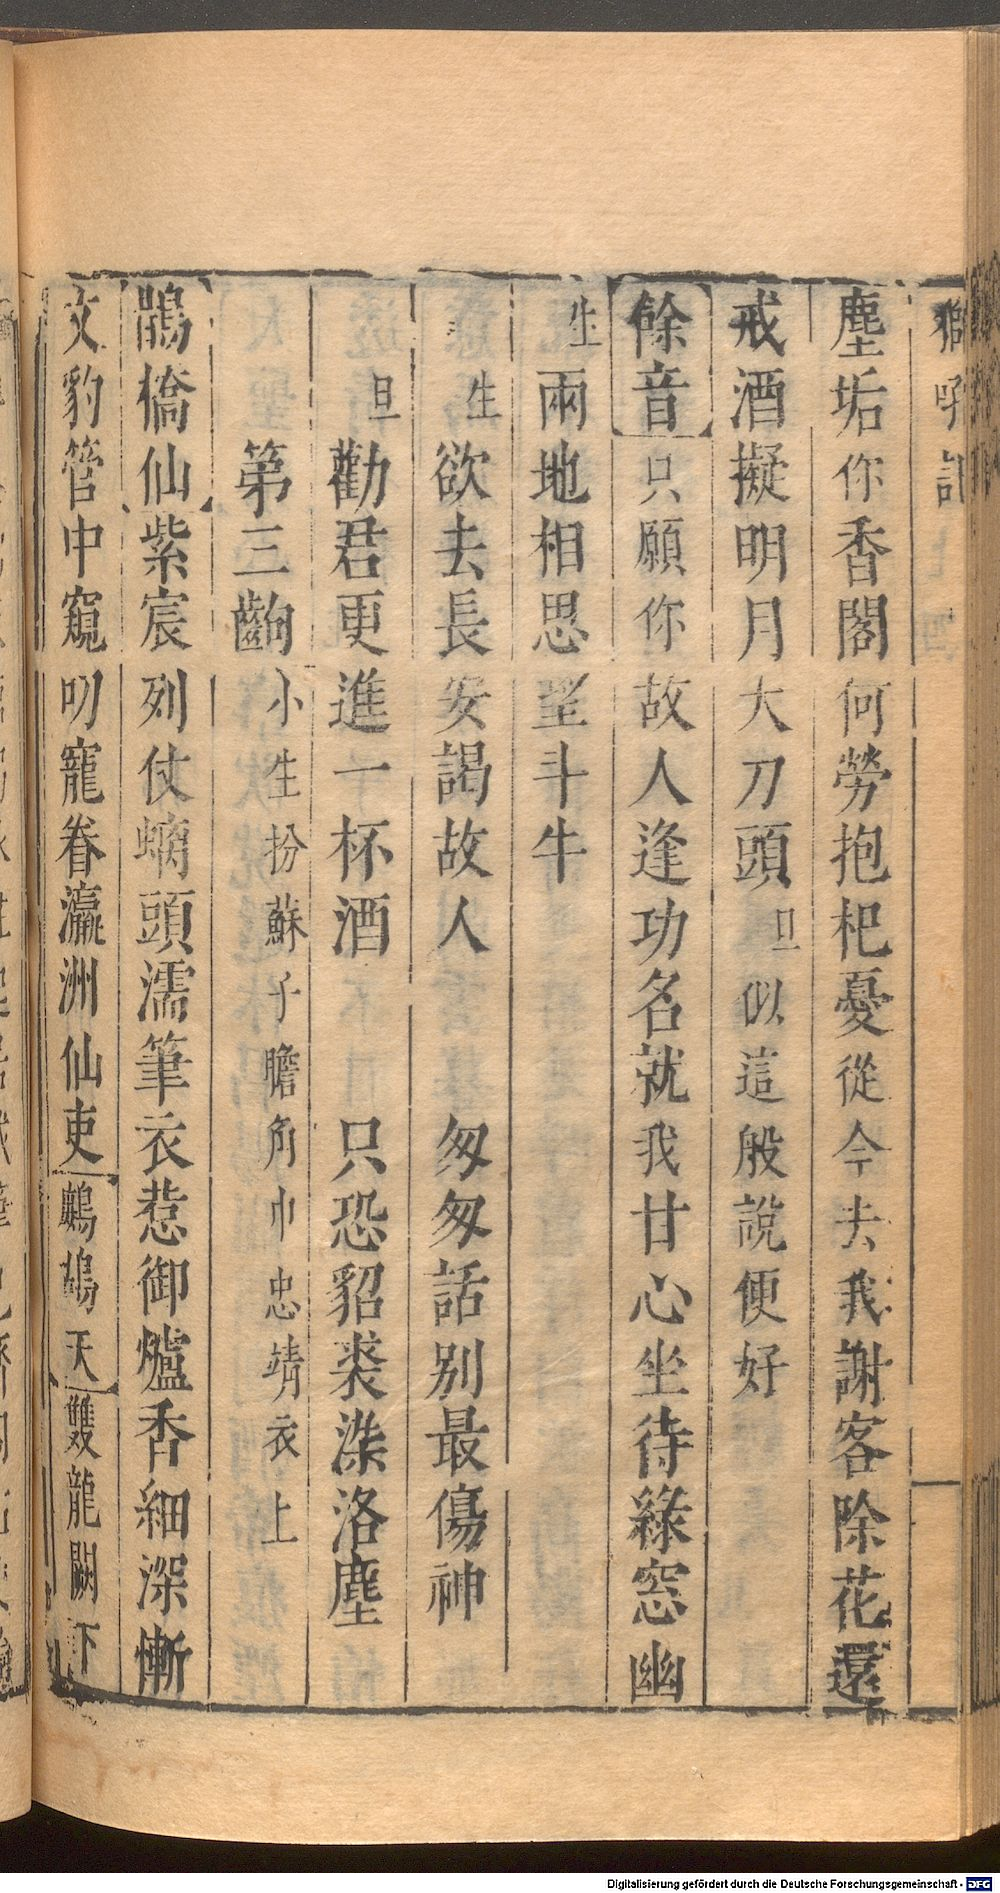 獅吼記
塵垢你香閣何勞抱杞憂從今去我謝客除花還
戒酒擬明月大刀頭旦似這般說便好
餘音只願你故人逢功名就我甘心坐待綠窓幽
生兩地相思望斗牛
生欲去長安謁故人 匆匆話别最傷神
旦勸君更進一杯酒 只恐貂裘染洛塵
第三齣小生扮蘇子瞻角巾忠靖衣上
鵲橋仙紫宸列仗螭頭濡筆衣惹御爐香細深慚
文豹管中窺叨寵眷瀛洲仙吏鷓鴣天雙龍闕下
Digitalisierung gefördert durch die Deutsche Forschungsgemeinschaft - DFG